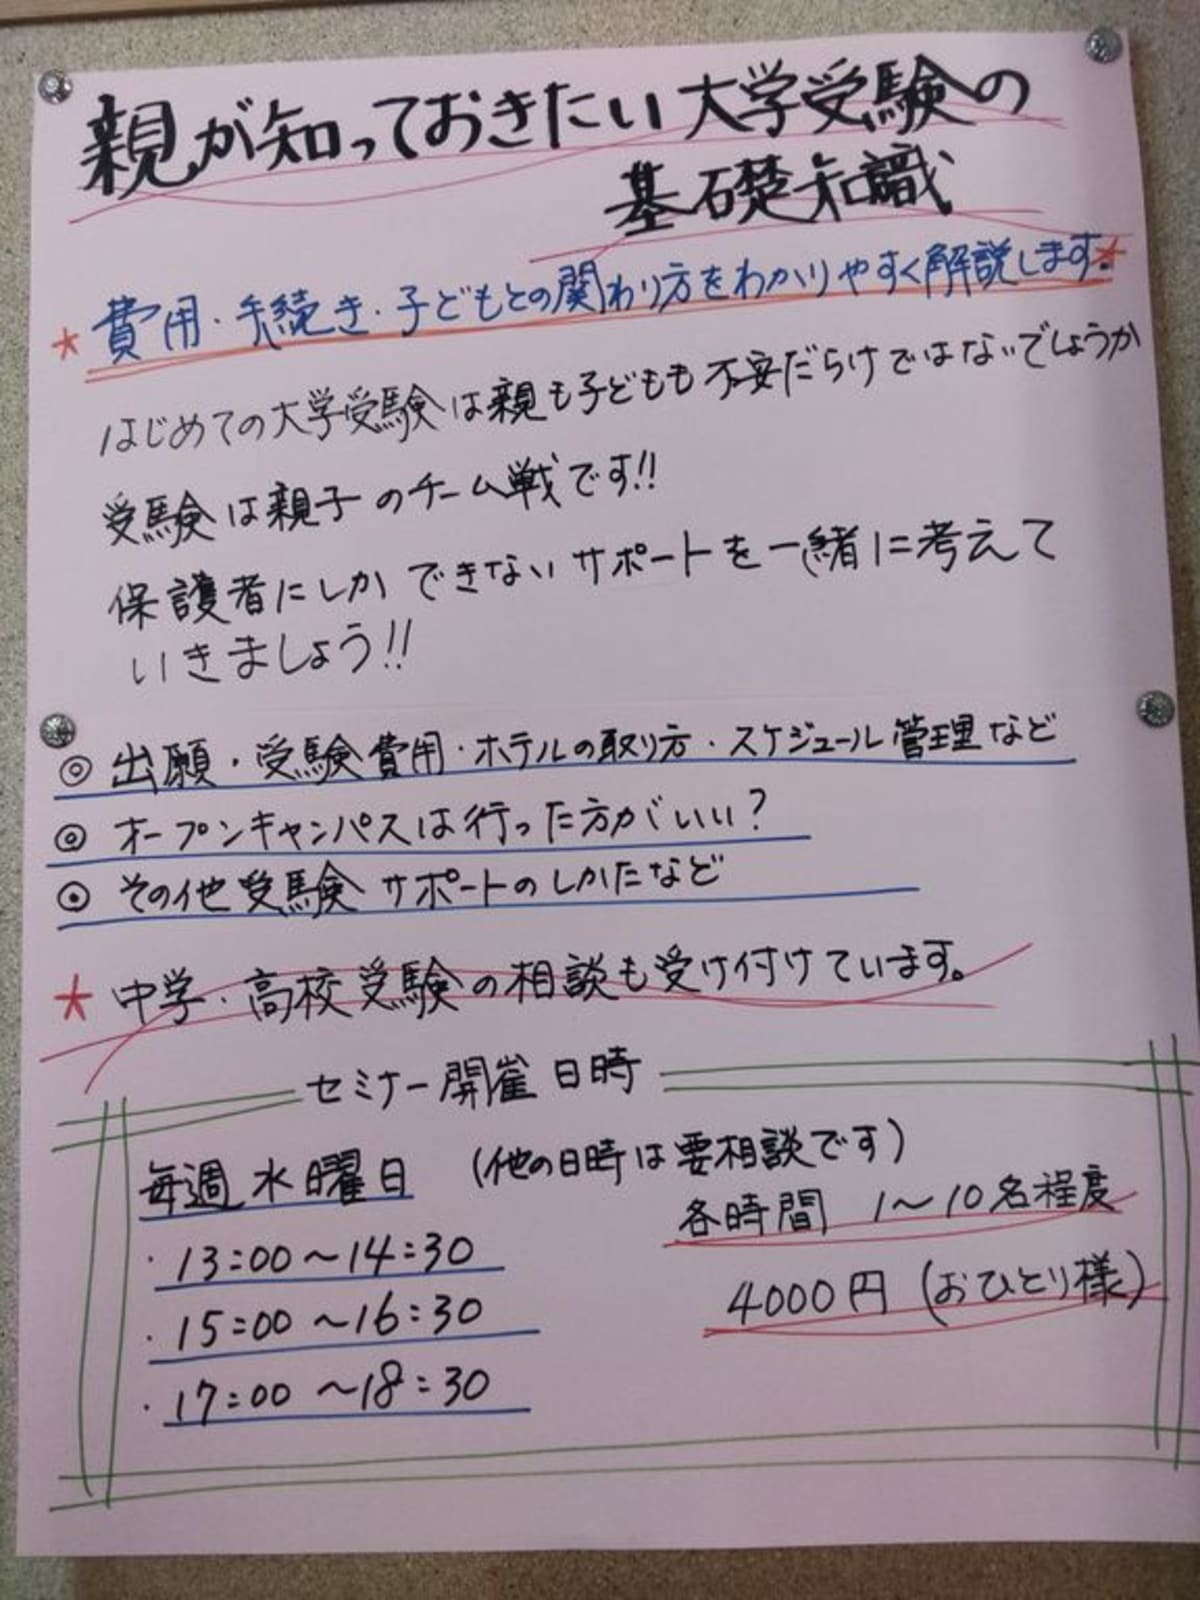 親が知っておきたい大学受験の
基礎知識
* 費用・手続き・子どもとの関わり方をわかりやすく解説します。*
はじめての大学受験は親も子どもも不安だらけではないでしょうか
受験は親子のチーム戦です!!
保護者にしかできないサポートを一緒に考えて
いきましょう!!
◎ 出願・受験費用・ホテルの取り方・スケジュール管理など
◎ オープンキャンパスは行った方がいい?
◎ その他受験サポートのしかたなど
* 中学・高校受験の相談も受け付けています。
セミナー開催日時
毎週水曜日 (他の日時は要相談です)
各時間 1〜10名程度
・13:00〜14:30
4000円(おひとり様)
・15:00〜16:30
・17:00〜18:30